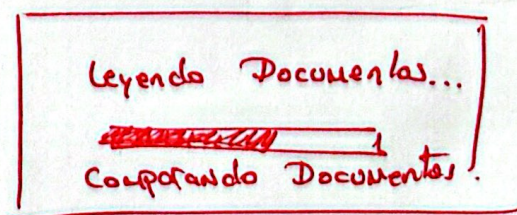 Leyendo Documentos...
Comparando Documentos.